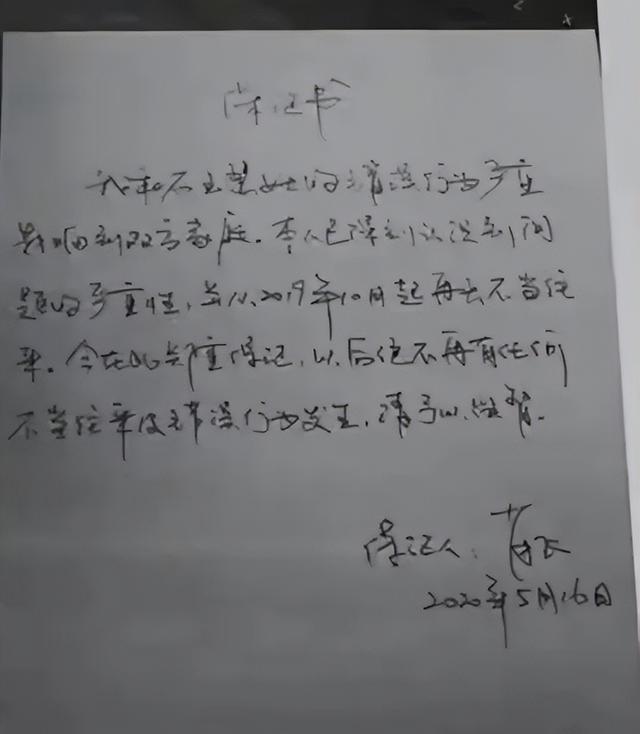 保证书
我和石玉莹女士的错误行为严重
影响到双方家庭。本人已深刻认识到问
题的严重性，并从2019年10月起再无不当往
来。今在此郑重保证，以后绝不再有任何
不当往来及错误行为发生，请予以监督。
保证人：
2020年5月16日